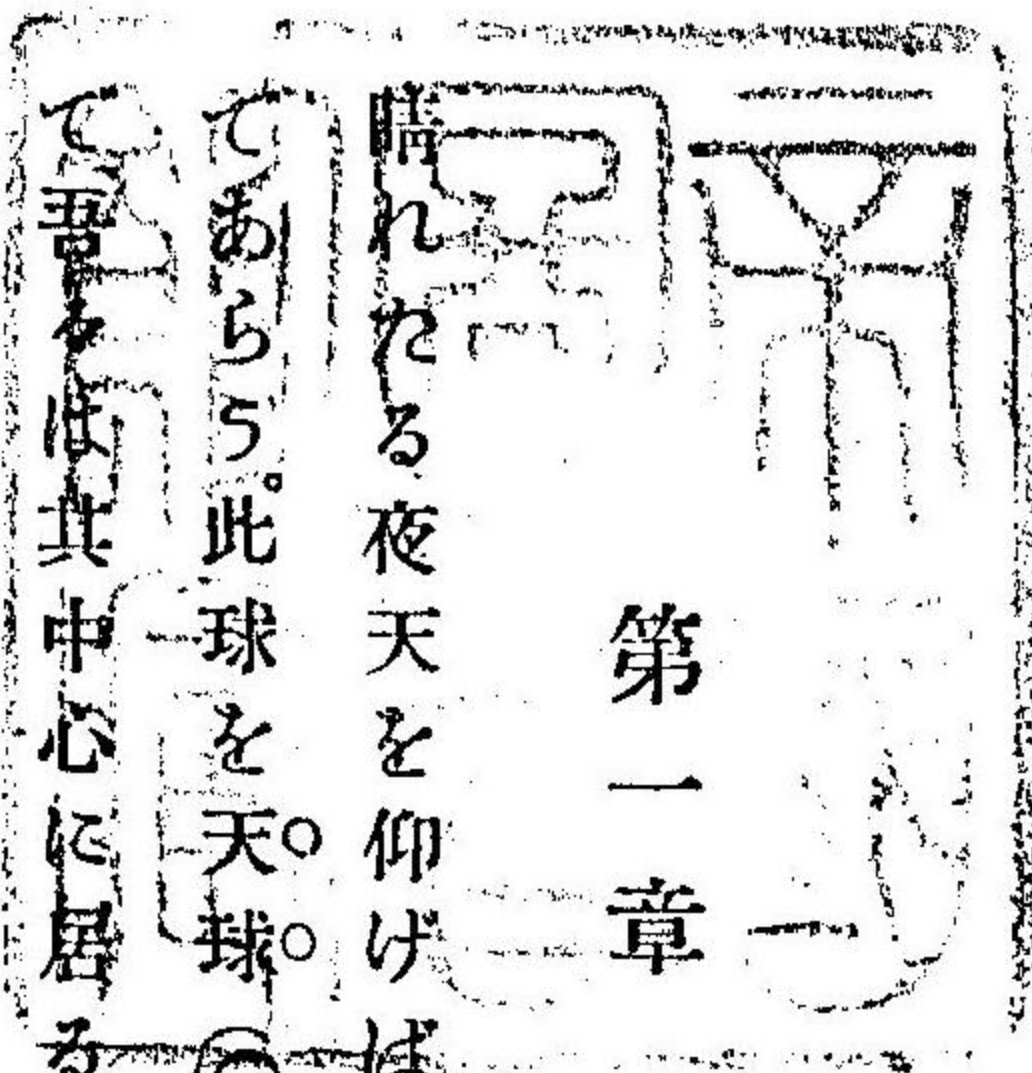 第一章
晴れたる夜天を仰げば
であらう。此球を天球(
て吾々は其中心に居る